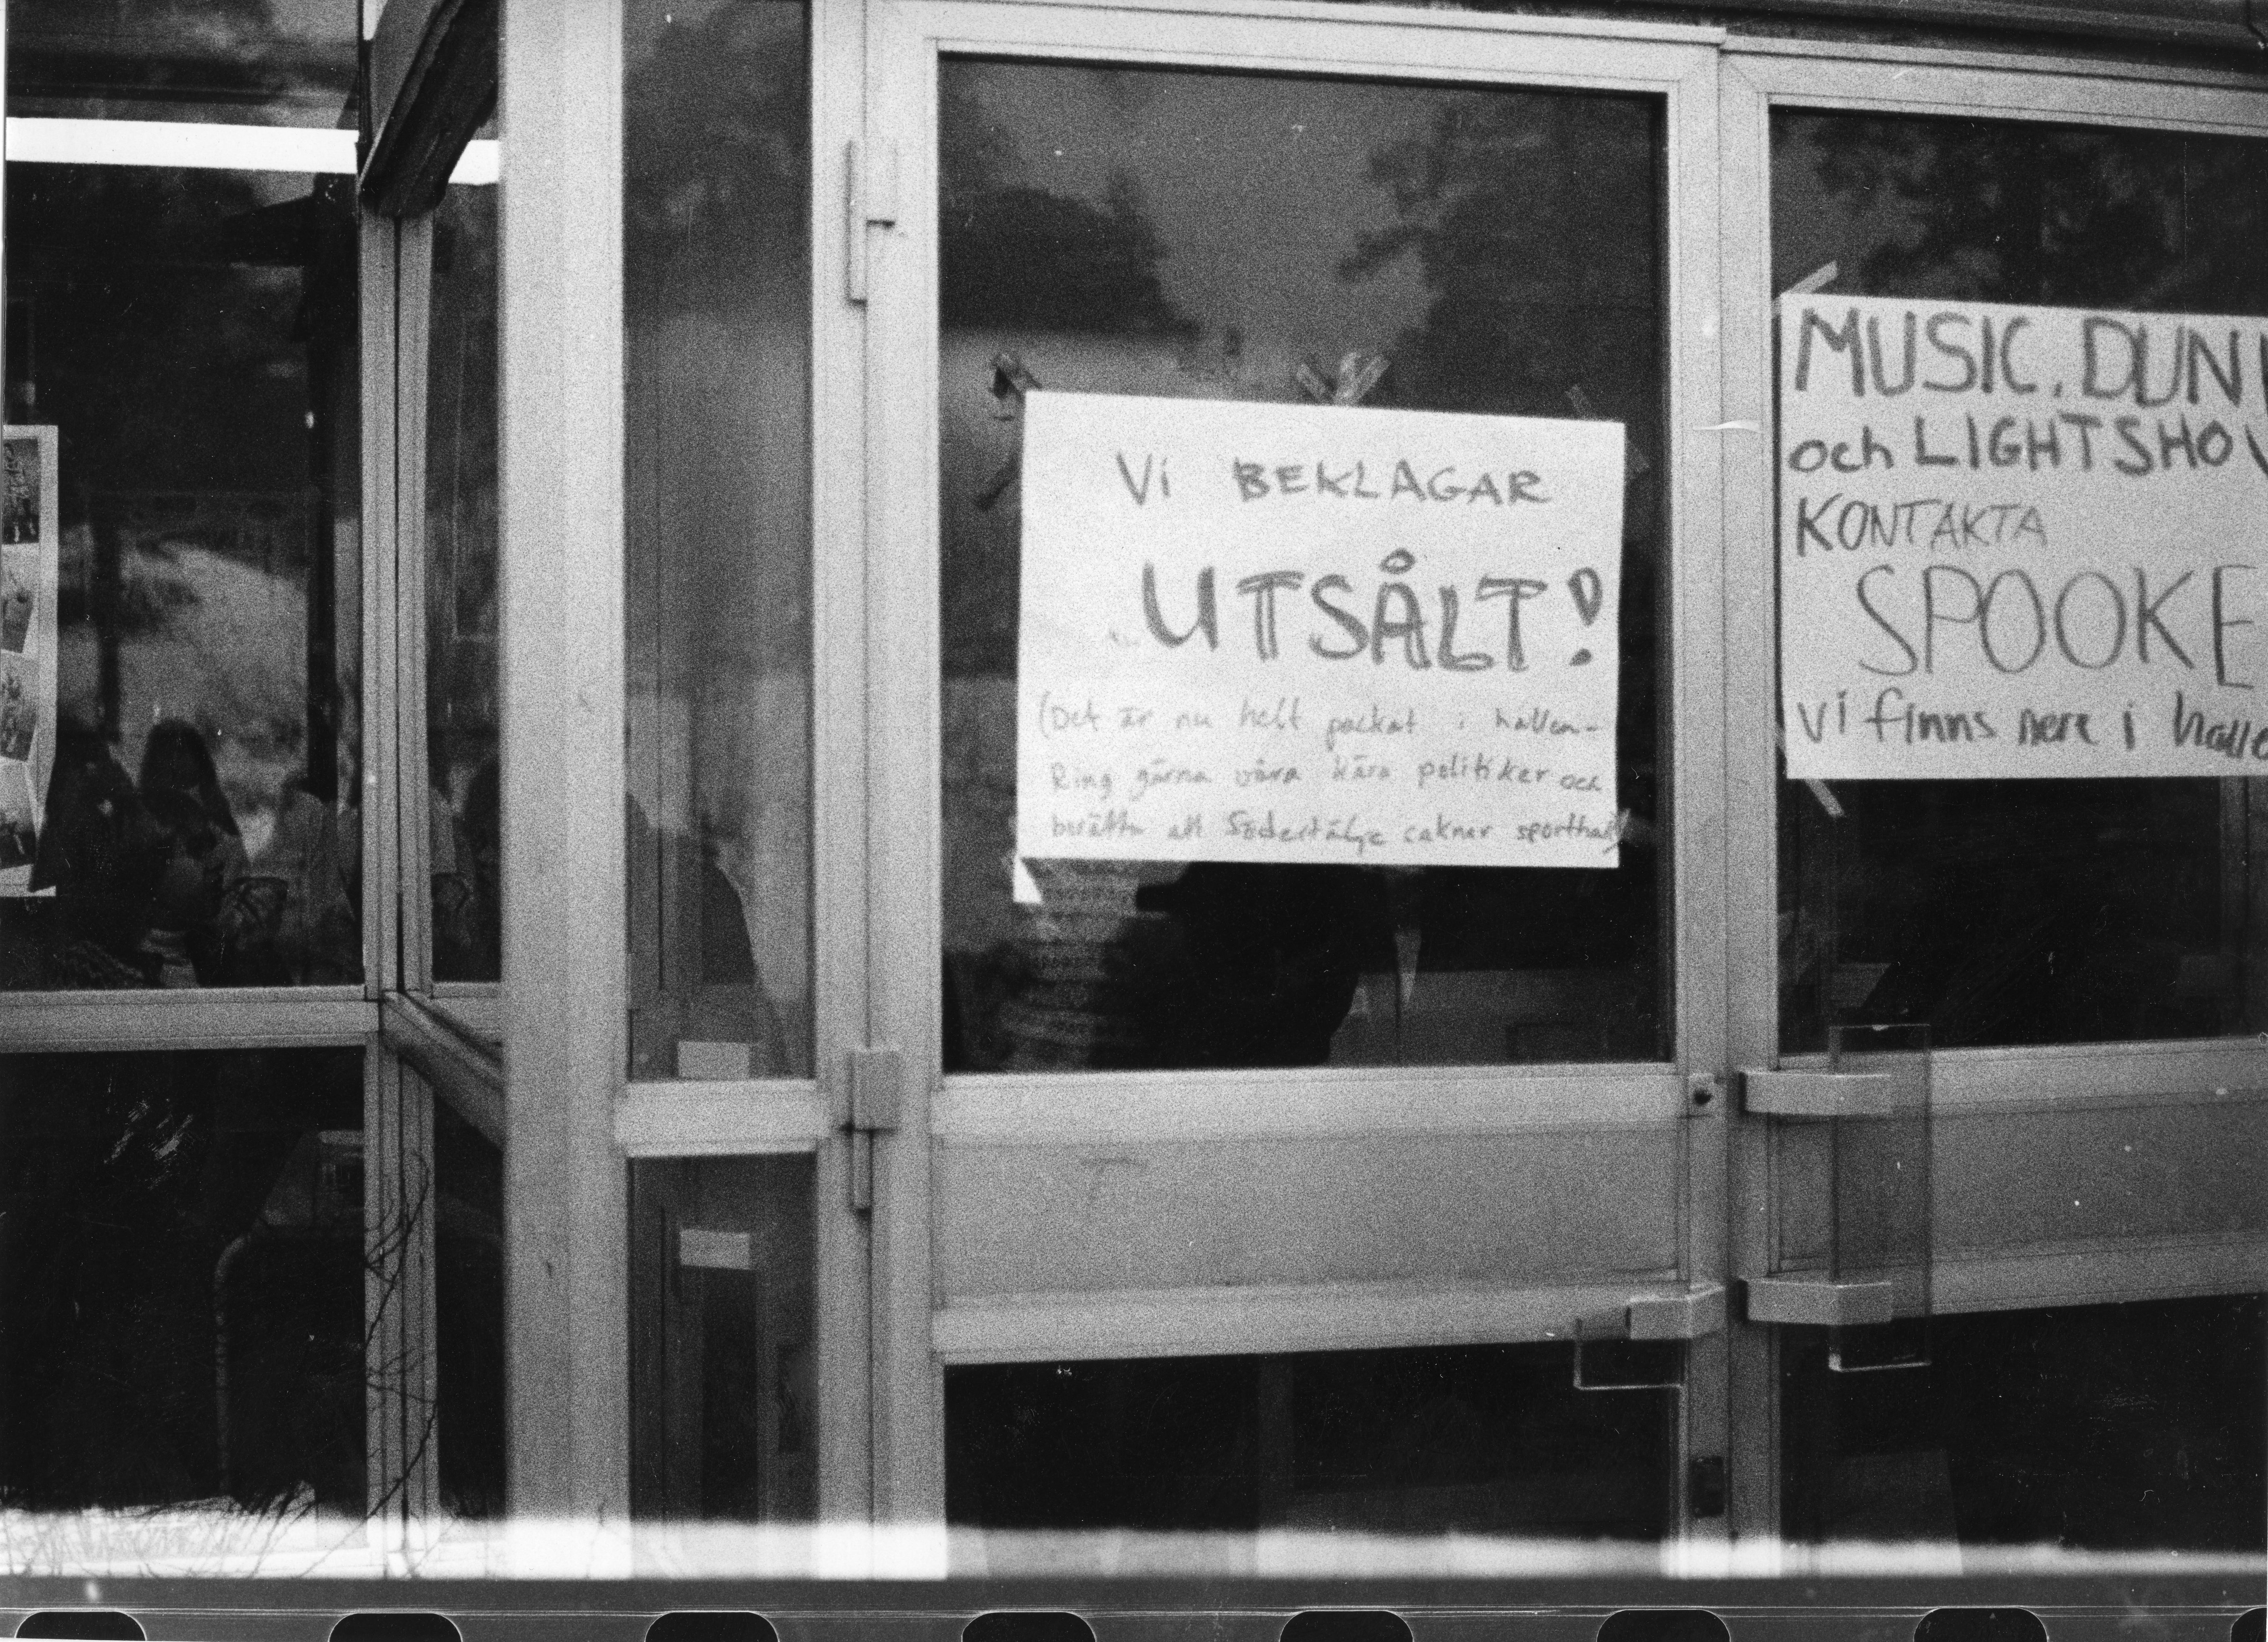 Vi BEKLAGAR
UTSÅLT!
(Det är nu helt packat i hallen-
Ring gärna våra kära politiker och
berätta att Södertälje caknar sporthall)
MUSIC, DUN
och LIGHTSHOW
KONTAKTA
SPOOKE
Vi finns nere i halle